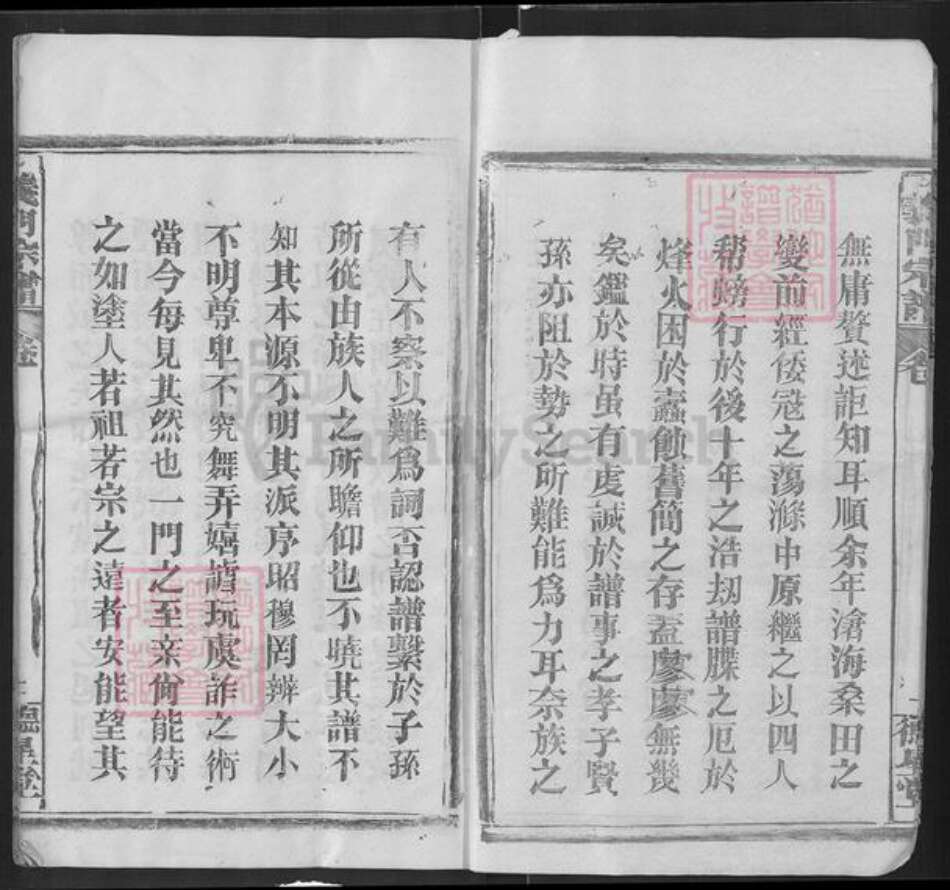 無庸贅述詎知耳順余年滄海桑田之
變前經倭冦之蕩滌中原繼之以四人
帮螃行於後十年之浩刼譜牒之厄於
烽火困於蠹蝕舊簡之存盖廖廖無幾
矣鑑於時虽有虔誠於譜事之孝子賢
孫亦阻於勢之所難能爲力耳奈族之
有人不察以難爲詞否認譜繫於子孫
所從由族人之所瞻仰也不曉其譜不
知其本源不明其派序昭穆罔辨大小
不明尊卑不究舞弄嬉謔玩虞詐之術
當今每見其然也一門之至亲尙能待
之如塗人若祖若宗之遠者安能望其
義門宗譜 卷
義門宗譜 卷
FamilySearch